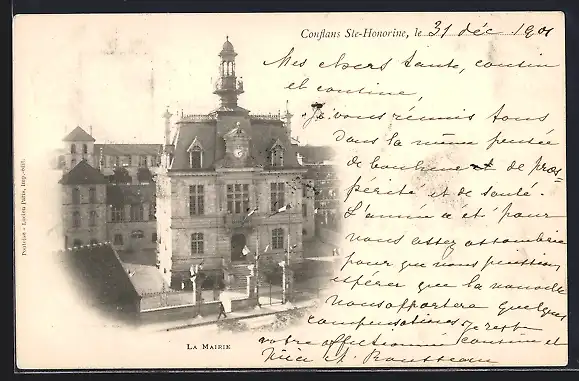 Conflans Ste-Honorine, le 31 déc 1901
Mes chers tante, cousin
et cousine,
Je vous réunis tous
dans la même pensée
de bonheur et de pros-
périté et de santé.
L'année a été pour
nous assez assombrie
pour que nous puissions
espérer que la nouvelle
nous apportera quelques
compensations. Je reste
votre affectionné cousin et
neveu
LA MAIRIE
Pontoise - Lucien Pâris, Imp.-édit.